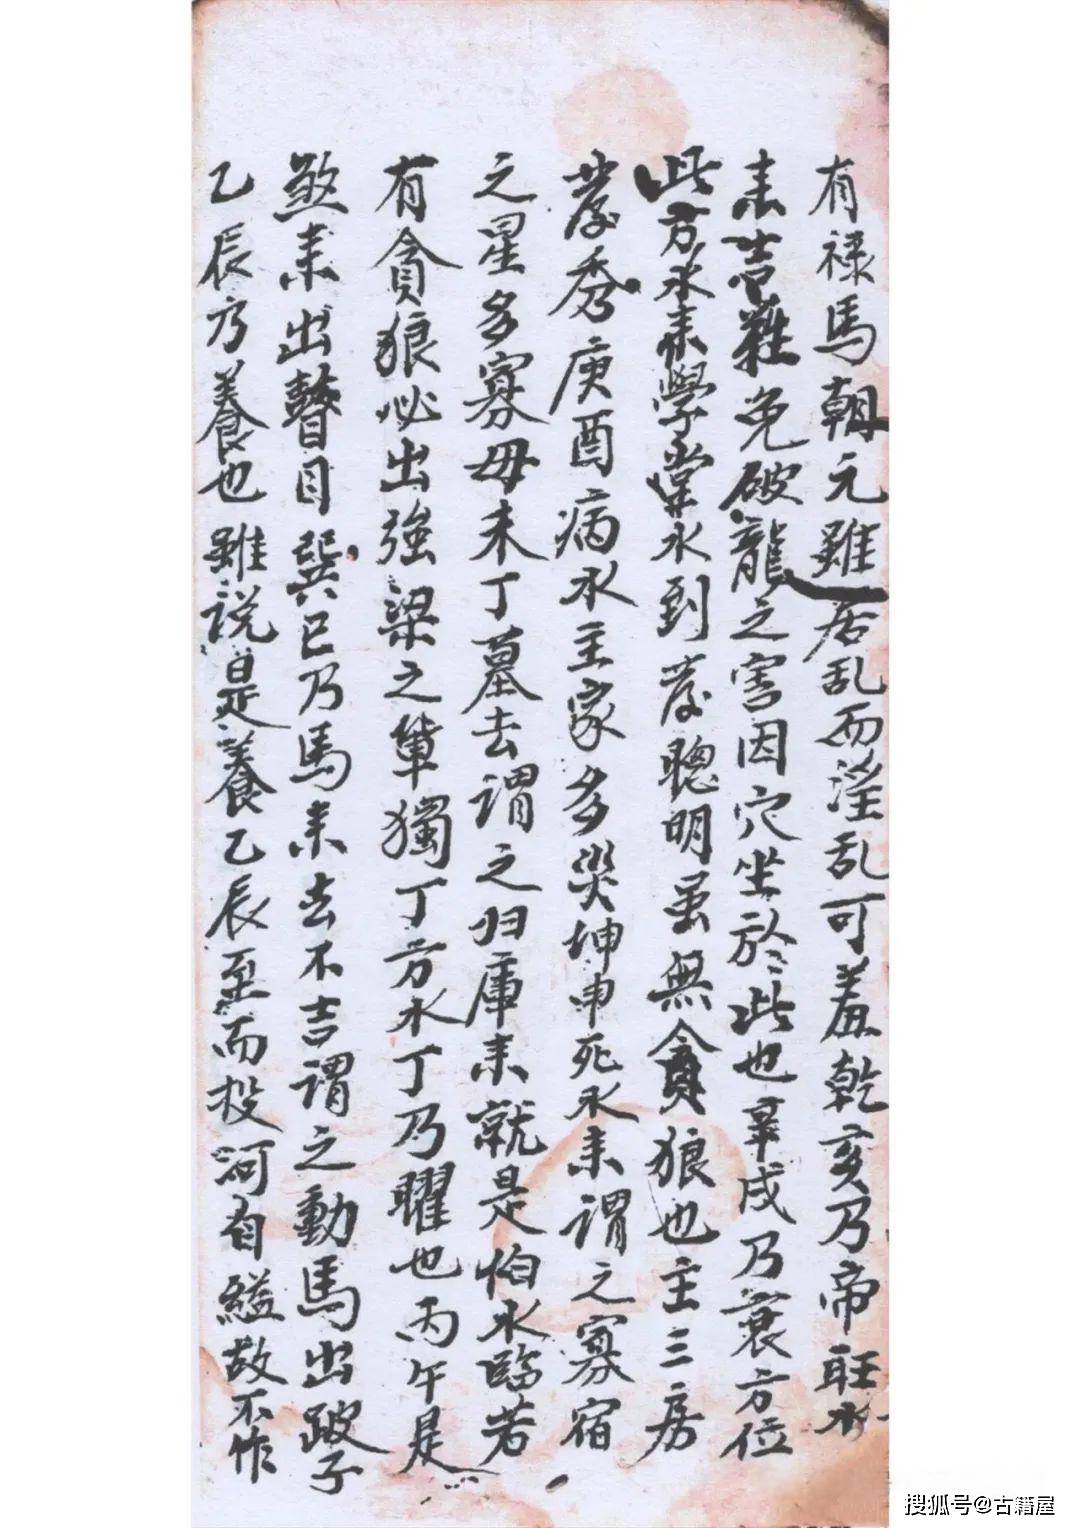 有禄馬朝元雖居乱而淫乱可羞乾亥乃帝旺水
来吉難免破龍之害因穴坐於此也辛戌乃衰方位
此方水来學堂水到發聰明虽無貪狼也主三房
發秀庚酉病水主家多災坤申死水来謂之寡宿
之星多寡母未丁墓去謂之归庫来就是怕水臨若
有貪狼必出強梁之輩獨丁方水丁乃曜也丙午是
煞来出瞽目巽巳乃馬来去不吉謂之動馬出跛子
乙辰乃養也雖说是養乙辰至而投河自縊故不作
搜狐号@古籍屋